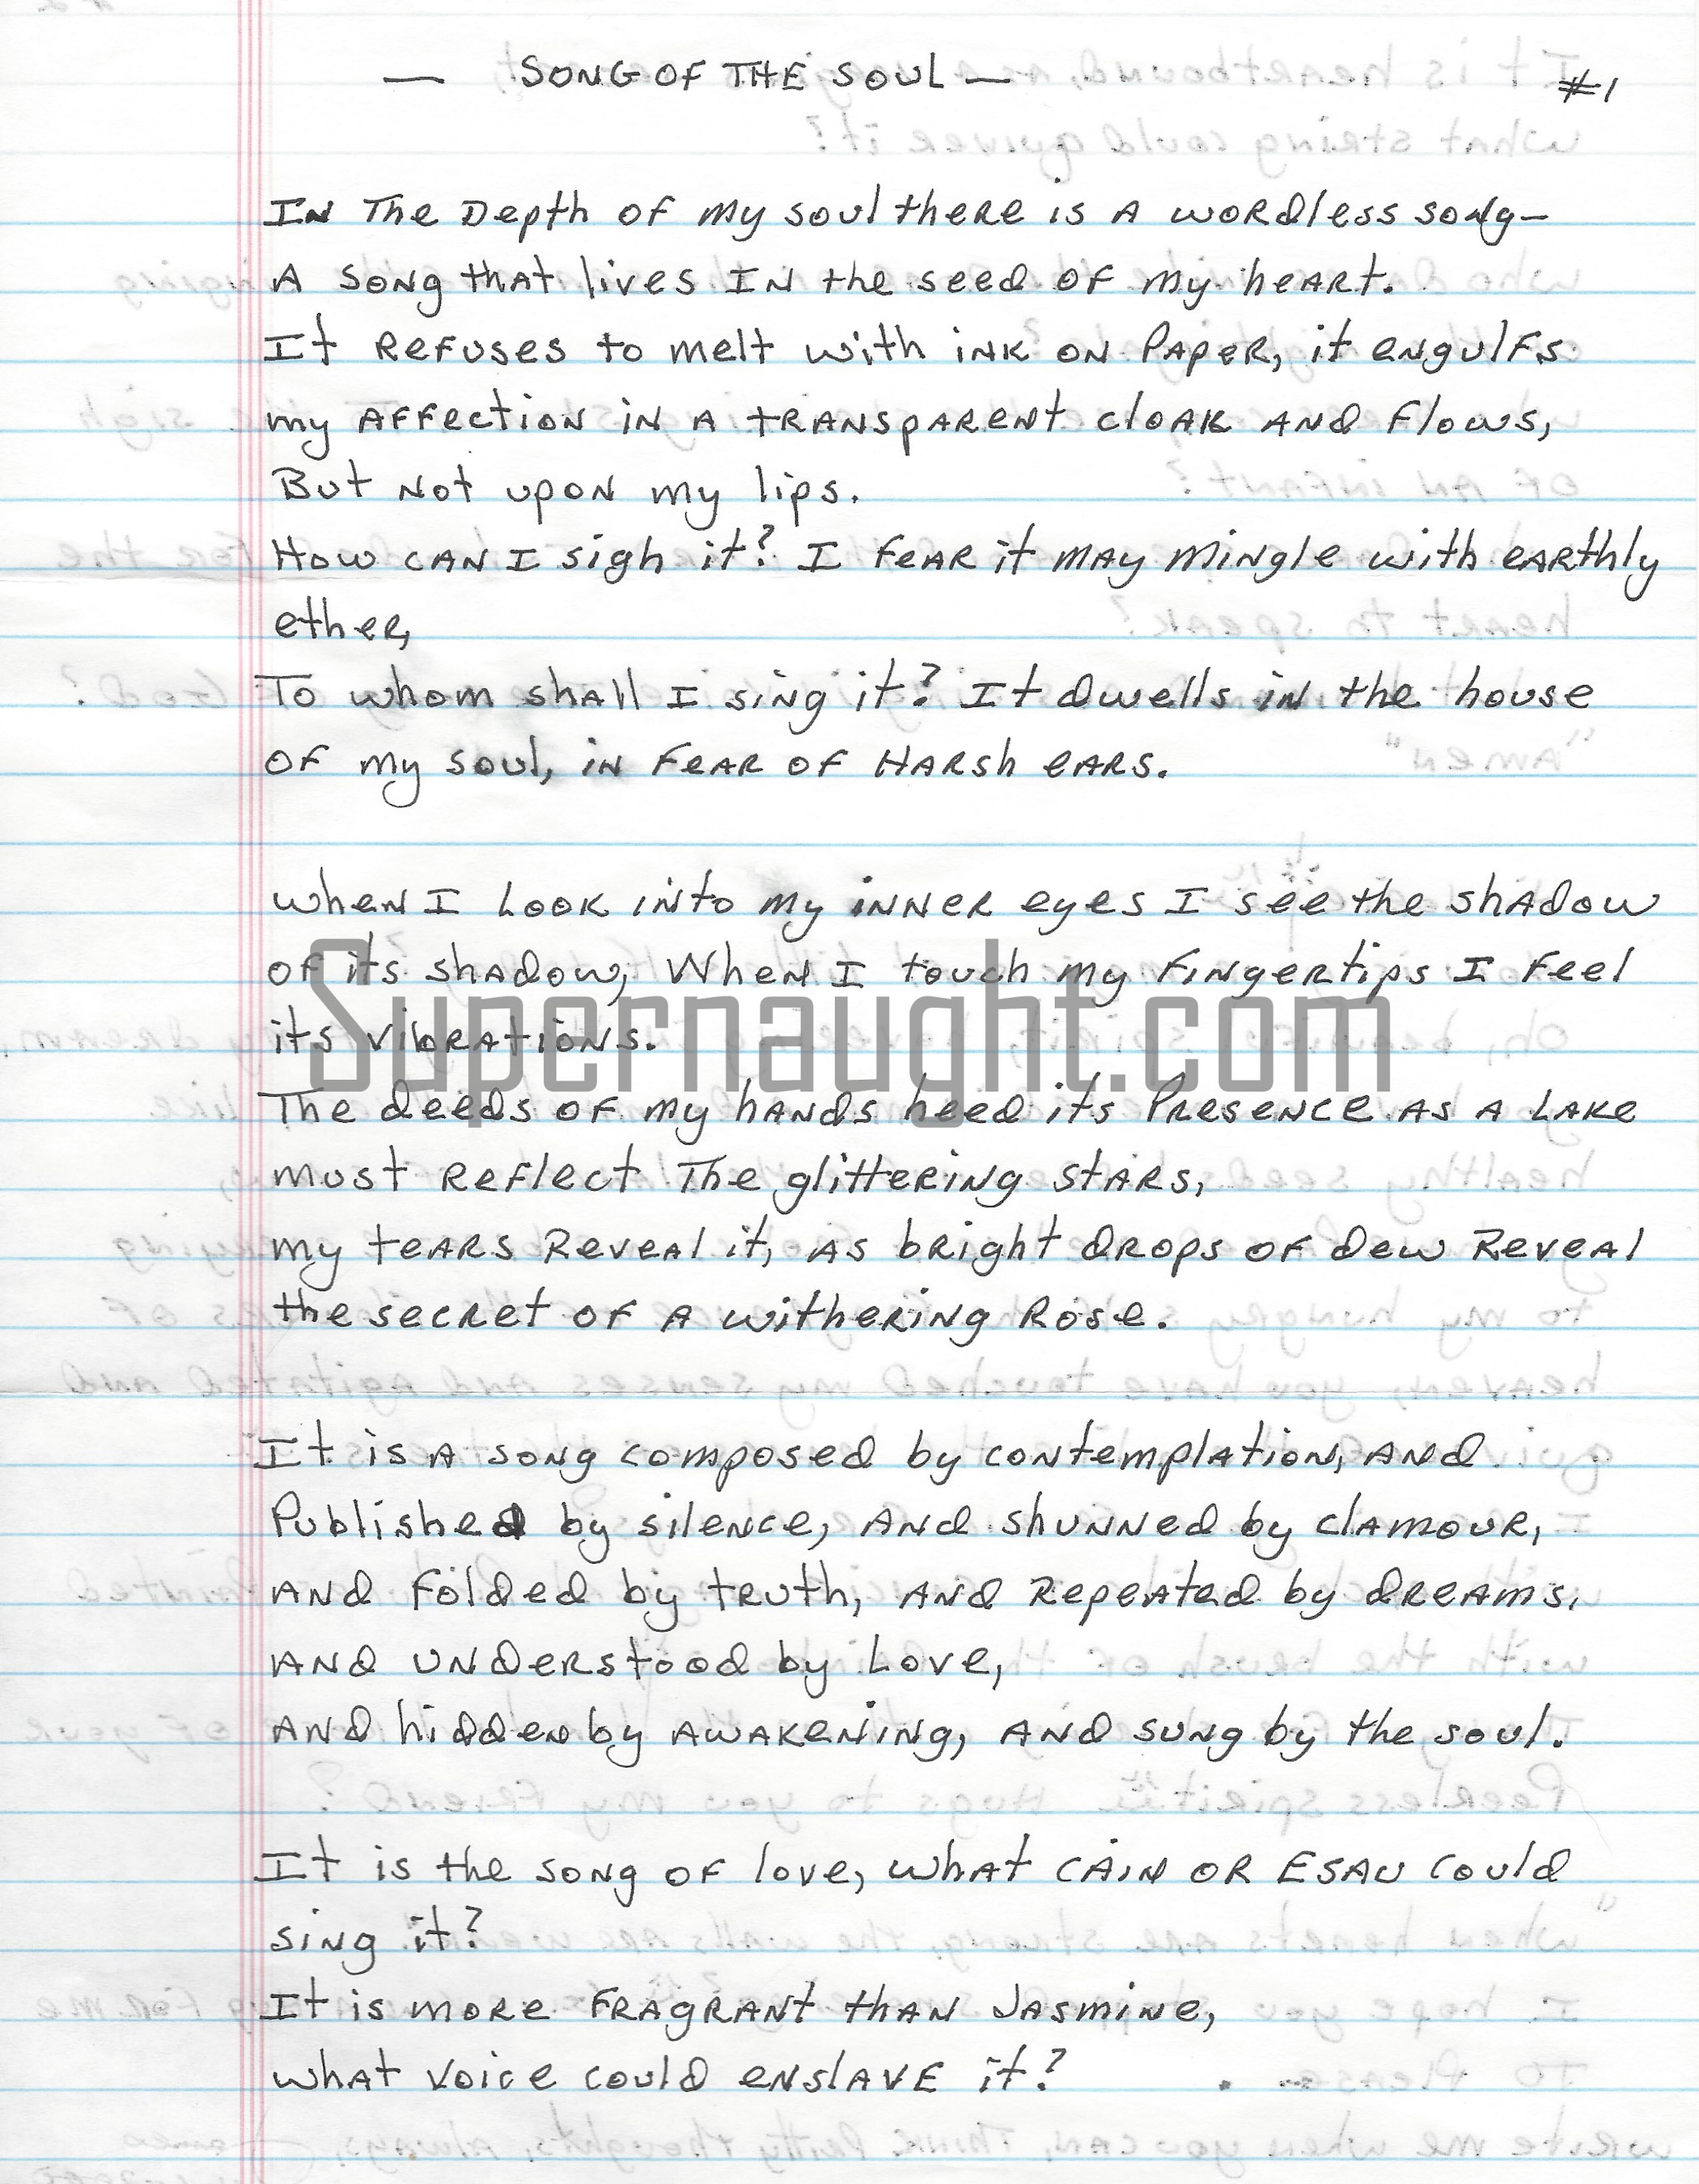 — SONG OF THE SOUL — #1
IN The Depth of my soul there is A wordless song—
A song that lives IN the seed of my heart.
It Refuses to melt with ink on Paper, it engulfs
my Affection in A transparent cloak and flows,
But not upon my lips.
How can I sigh it? I fear it may mingle with earthly
ether,
To whom shall I sing it? It dwells in the house
of my soul, in fear of Harsh ears.
when I Look into my inner eyes I see the shadow
of its shadow, When I touch my fingertips I feel
its vibrations.
Supernaught.com
The deeds of my hands heed its Presence as a Lake
must Reflect The glittering stars,
my tears Reveal it, as bright drops of dew Reveal
the secret of a withering Rose.
It is a song composed by contemplation, and
Published by silence, and shunned by clamour,
and folded by truth, and Repeated by dreams,
and understood by Love,
and hidden by awakening, and sung by the soul.
It is the song of love, what Cain or Esau could
sing it?
It is more fragrant than Jasmine,
what voice could enslave it?